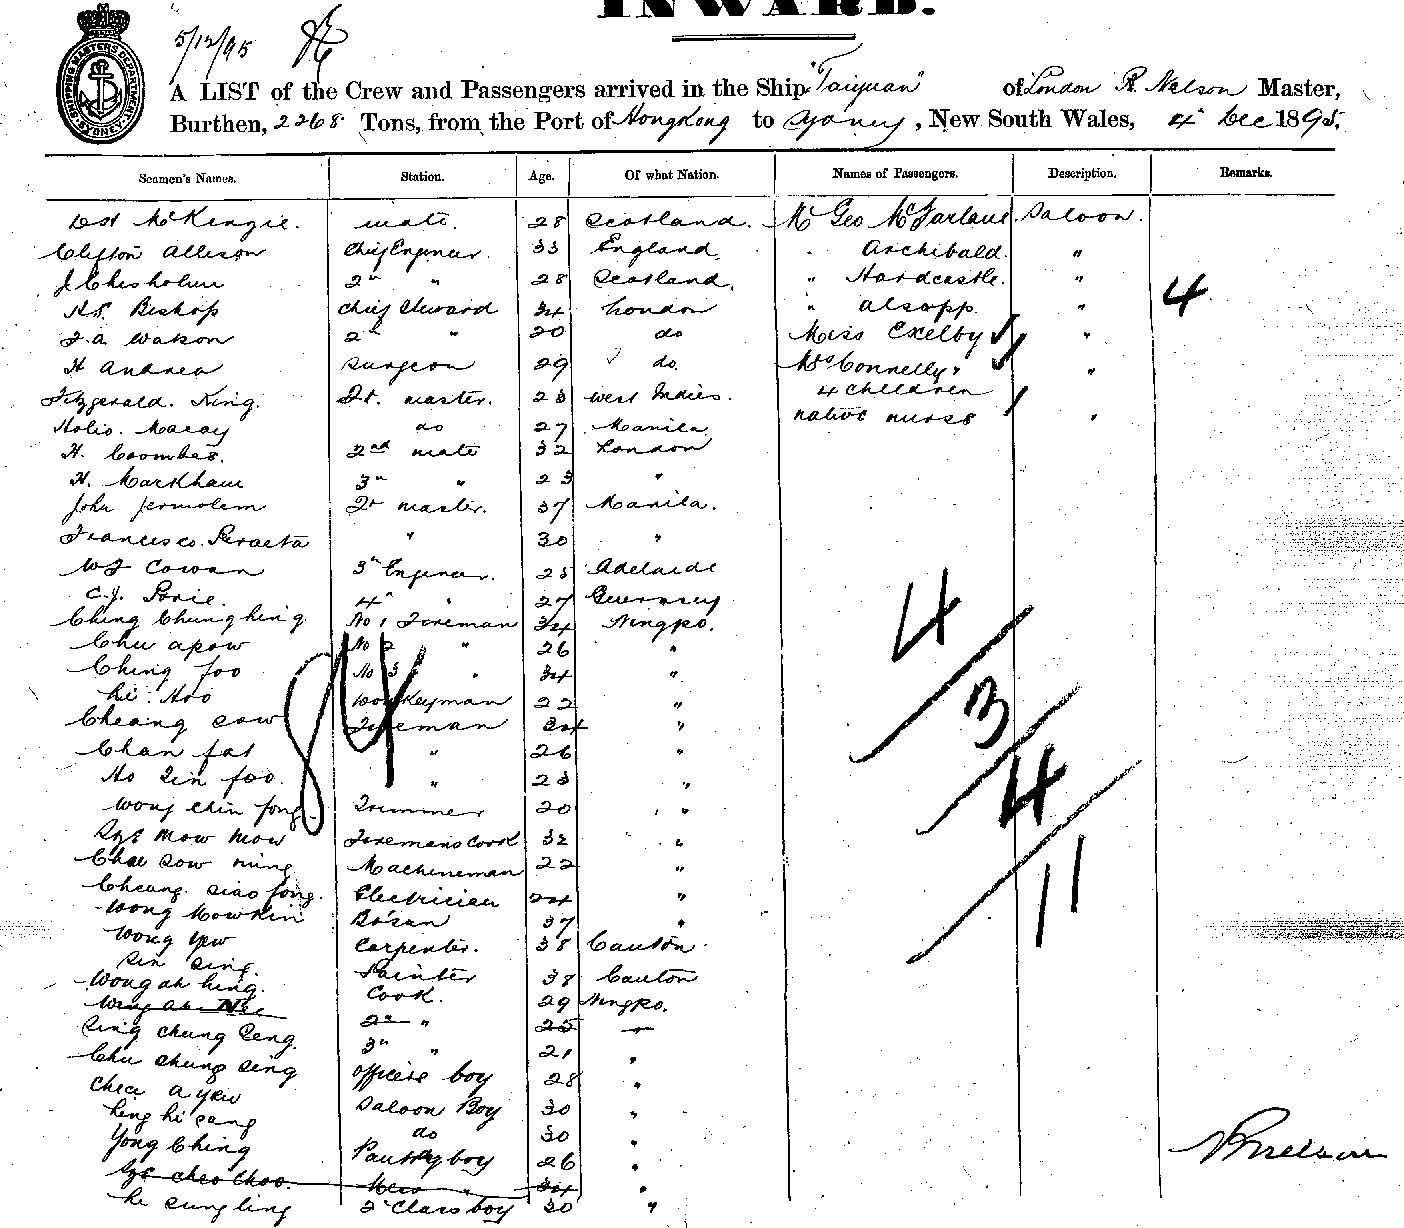 INWARD.
SHIPPING MASTERS DEPARTMENT SYDNEY
5/12/95
A LIST of the Crew and Passengers arrived in the Ship "Taiyuan" of London R. Nelson Master,
Burthen, 2268 Tons, from the Port of Hongkong to Sydney, New South Wales, 4 Dec 1895.
Seamen's Names. Station. Age. Of what Nation. Names of Passengers. Description. Remarks.
McKenzie. mate. 28 Scotland. Mr Geo McFarlane Saloon.
Clifton Allison Chief Engineer. 33 England, " Archibald. "
J Chisholm 2nd " 28 Scotland. " Hardcastle. "
Bishop Chief Steward 34 London " Alsopp. " 4
Watson 2nd " 20 do Miss Exelby "
H Andrea Surgeon 29 do. Mrs Connelly "
Fitzgerald. King. Qr. master. 23 West Indies. 4 children
Macay do 27 Manila, native nurse "
H. Coombes. 2nd mate 32 London
H. Markham 3rd " 23 "
John Qr master. 37 Manila.
Francisco. Peraeta " 30 "
Cowan 3rd Engineer. 25 Adelaide
C.J. 4 " 27 Guernsey
Ching Chung hing No 1 Foreman 34 Ningpo.
Chu apow No 2 " 26 "
Ching foo No 3 " 34 "
Hoo Donkeyman 22 "
Cheang sow Fireman 24 "
Chan fat " 26 "
Ho Qin foo. " 23 "
Wong Chin fong. Trimmer 20 "
mow mow Firemans Cook 32 "
Chu Sow ning Machineman 22 "
Cheang siao fong. Electrician 24 "
Wong Bosun 37 "
Wong yew Carpenter. 38 Canton.
Sin Sing. Painter 38 Canton
Wong ah hing. Cook. 29 Ningpo.
Wong ah 2nd " 25
Sing chung Seng. 3rd " 21 "
Chu chung sing officers boy 28 "
Saloon Boy 30 "
do 30 "
Yong Ching Pantry boy 26 "
choo 34 "
sung ling 2 Class boy 30 "
84
4
3
4
11
R Nelson